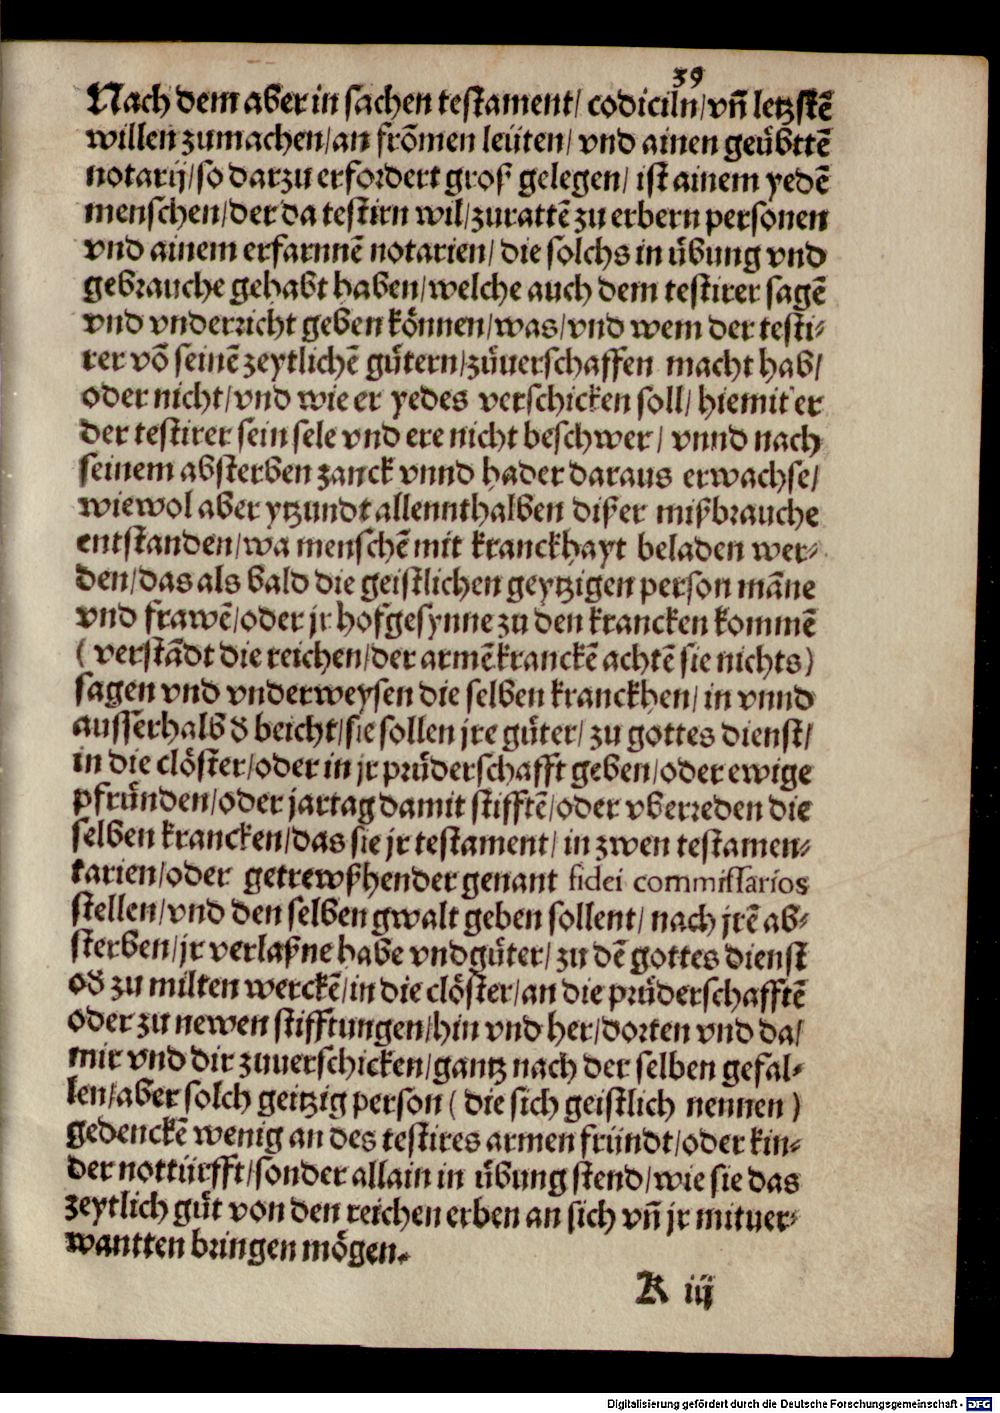 39
Nach dem aber in sachen testament/ codiciln/ vñ letzstē
willen zumachen/ an frõmen leüten/ vnd ainen geübttē
notarij/ so darzu erfordert groß gelegen/ ist ainem yedē
menschen/ der da testirn wil/ zurattē zu erbern personen
vnd ainem erfarnnē notarien/ die solchs in übung vnd
gebrauche gehabt haben/ welche auch dem testirer sagē
vnd vnderricht geben können/ was/ vnd wem der testi-
rer võ seinē zeytlichē gütern/ züuerschaffen macht hab/
oder nicht/ vnd wie er yedes verschicken soll/ hiemit er
der testirer sein sele vnd ere nicht beschwer/ vnnd nach
seinem absterben zanck vnnd hader daraus erwachse/
wiewol aber ytzundt allennthalben dißer mißbrauche
entstanden/ wa menschē mit kranckhayt beladen wer-
den/ das als bald die geistlichen geytzigen person mãne
vnd frawē/ oder jr hofgesynne zu den krancken kommē
( verstãdt die reichen/ der armē kranckē achtē sie nichts)
sagen vnd vnderweysen die selben kranckhen/ in vnnd
ausserhalb d̕ beicht/ sie sollen jre güter/ zu gottes dienst/
in die clöster/ oder in jr prüderschafft geben/ oder ewige
pfründen/ oder jartag damit stifftē/ oder vberreden die
selben krancken/ das sie jr testament/ in zwen testamen-
tarien/ oder getrewßhender genant fidei commissarios
stellen/ vnd den selben gwalt geben sollent/ nach jrē ab-
sterben/ jr verlaßne habe vnd güter/ zu dē gottes dienst
od̕ zu milten werckē/ in die clöster/ an die prüderschafftē
oder zu newen stifftungen/ hin vnd her/ dorten vnd da/
mir vnd dir zuuerschicken/ gantz nach der selben gefal-
len/ aber solch geitzig person ( die sich geistlich nennen )
gedenckē wenig an des testires armen fründt/ oder kin-
der nottürfft/ sonder allain in übung stend/ wie sie das
zeytlich güt von den reichen erben an sich vñ jr mituer-
wantten bringen mögen.
K iij
Digitalisierung gefördert durch die Deutsche Forschungsgemeinschaft - DFG